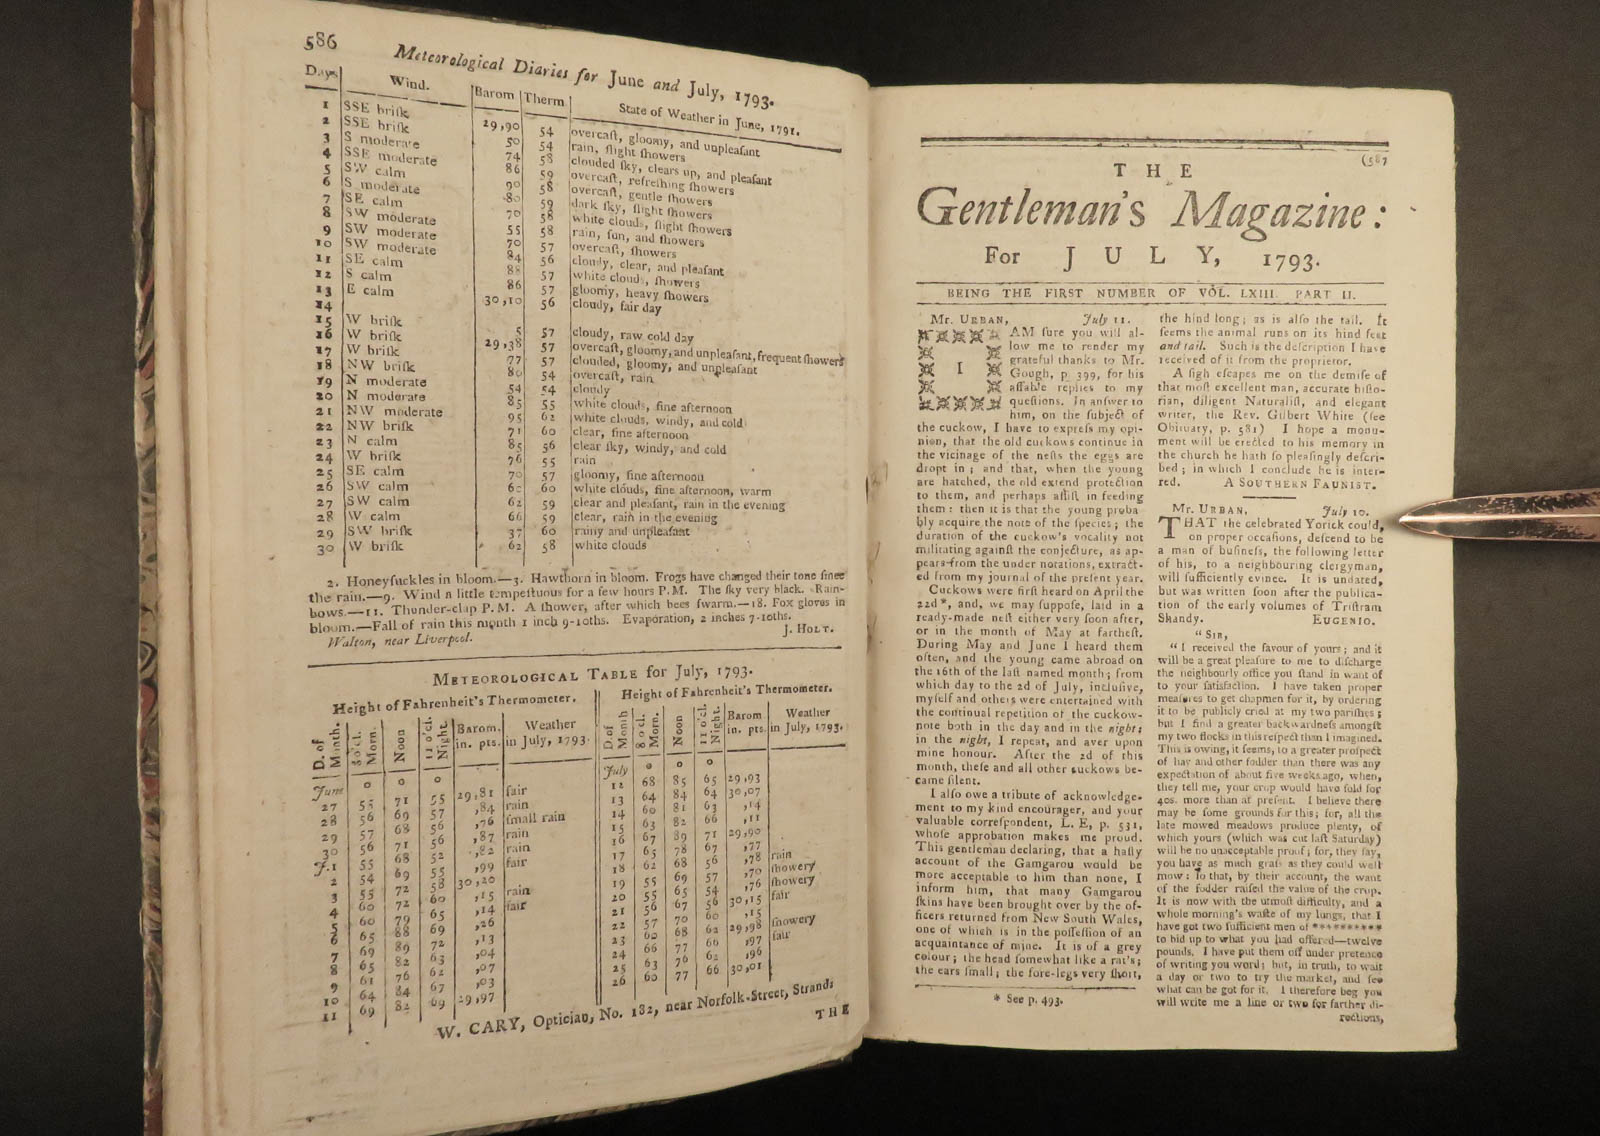 586
Meteorological Diaries for June and July, 1793.
Days Wind. Barom Therm State of Weather in June, 1791.
1 SSE briſk 29,90 54 overcaſt, gloomy, and unpleaſant
2 SSE briſk 50 54 rain, ſlight ſhowers
3 S moderate 74 58 clouded ſky, clears up, and pleaſant
4 SSE moderate 86 59 overcaſt, refreſhing ſhowers
5 SW calm 90 58 overcaſt, gentle ſhowers
6 S moderate 80 59 dark ſky, ſlight ſhowers
7 SE calm 70 58 white clouds, ſlight ſhowers
8 SW moderate 55 58 rain, ſun, and ſhowers
9 SW moderate 70 57 overcaſt, ſhowers
10 SW moderate 84 56 cloudy, clear, and pleaſant
11 SE calm 88 57 white clouds, ſhowers
12 S calm 86 57 gloomy, heavy ſhowers
13 E calm 30,10 56 cloudy, fair day
14
15 W briſk 5 57 cloudy, raw cold day
16 W briſk 29,38 57 overcaſt, gloomy, and unpleaſant, frequent ſhowers
17 W briſk 77 57 clouded, gloomy, and unpleaſant
18 NW briſk 80 54 overcaſt, rain
19 N moderate 54 54 cloudy
20 N moderate 85 55 white clouds, fine afternoon
21 NW moderate 95 62 white clouds, windy, and cold
22 NW briſk 71 60 clear, fine afternoon
23 N calm 85 56 clear ſky, windy, and cold
24 W briſk 76 55 rain
25 SE calm 70 57 gloomy, fine afternoon
26 SW calm 60 white clouds, fine afternoon, warm
27 SW calm 62 57 clear and pleaſant, rain in the evening
28 W calm 66 59 clear, rain in the evening
29 SW briſk 37 60 rainy and unpleaſant
30 W briſk 62 58 white clouds
2. Honeyſuckles in bloom.—3. Hawthorn in bloom. Frogs have changed their tone ſince
the rain.—9. Wind a little tempeſtuous for a few hours P.M. The ſky very black. Rain-
bows.—11. Thunder-clap P. M. A ſhower, after which bees ſwarm.—18. Fox gloves in
bloom.—Fall of rain this month 1 inch 9-10ths. Evaporation, 2 inches 7-10ths.
Walton, near Liverpool. J. HOLT.
METEOROLOGICAL TABLE for July, 1793.
Height of Fahrenheit's Thermometer. Height of Fahrenheit's Thermometer.
D. of Month. 8 o'cl. Morn. Noon 11 o'cl. Night. Barom. in. pts. Weather in July, 1793.
June
27 55 71 55 29,81 fair
28 56 69 57 ,84 rain
29 57 68 56 ,76 ſmall rain
30 56 71 56 ,87 rain
J.1 55 68 52 ,82 rain
2 54 69 55 ,99 fair
3 55 72 58 30,20
4 60 72 60 ,15 rain
5 60 79 65 ,14 fair
6 65 88 69 ,26
7 69 89 72 ,13
8 65 82 63 ,04
9 61 76 62 ,07
10 64 84 67 ,03
11 69 82 69 29,97
D. of Month 8 o'cl. Morn. Noon 11 o'cl. Night. Barom in. pts. Weather in July, 1793.
July
12 68 85 65 29,93
13 64 84 64 30,07
14 60 81 63 ,14
15 63 82 66 ,11
16 67 89 71 29,90
17 65 78 67 ,77
18 62 68 56 ,78 rain
19 55 69 57 ,70 ſhowery
20 55 65 54 ,76 ſhowery
21 56 67 56 30,15 fair
22 57 70 60 ,15
23 60 68 62 29,98 ſhowery
24 66 77 60 ,97 fair
25 63 76 62 ,96
26 60 77 66 30,01
W. CARY, Optician, No. 182, near Norfolk-Street, Strand.
THE
(587
THE
Gentleman's Magazine:
For JULY, 1793.
BEING THE FIRST NUMBER OF VOL. LXIII. PART II.
Mr. URBAN, July 11.
I AM ſure you will al-
low me to render my
grateful thanks to Mr.
Gough, p. 399, for his
affable replies to my
queſtions. In anſwer to
him, on the ſubject of
the cuckow, I have to expreſs my opi-
nion, that the old cuckows continue in
the vicinage of the neſts the eggs are
dropt in; and that, when the young
are hatched, the old extend protection
to them, and perhaps aſſiſt in feeding
them: then it is that the young proba
bly acquire the note of the ſpecies; the
duration of the cuckow's vocality not
militating againſt the conjecture, as ap-
pears from the under notations, extract-
ed from my journal of the preſent year.
Cuckows were firſt heard on April the
22d*, and, we may ſuppoſe, laid in a
ready-made neſt either very ſoon after,
or in the month of May at fartheſt.
During May and June I heard them
often, and the young came abroad on
the 16th of the laſt named month; from
which day to the 2d of July, incluſive,
myſelf and others were entertained with
the continual repetition of the cuckow-
note both in the day and in the night;
in the night, I repeat, and aver upon
mine honour. After the 2d of this
month, theſe and all other cuckows be-
came ſilent.
I alſo owe a tribute of acknowledge-
ment to my kind encourager, and your
valuable correſpondent, L. E, p. 531,
whoſe approbation makes me proud.
This gentleman declaring, that a haſty
account of the Gamgarou would be
more acceptable to him than none, I
inform him, that many Gamgarou
ſkins have been brought over by the of-
ficers returned from New South Wales,
one of which is in the poſſeſſion of an
acquaintance of mine. It is of a grey
colour; the head ſomewhat like a rat's;
the ears ſmall; the fore-legs very ſhort,
* See p. 493.
the hind long; as is alſo the tail. It
ſeems the animal runs on its hind feet
and tail. Such is the deſcription I have
received of it from the proprietor.
A ſigh eſcapes me on the demiſe of
that moſt excellent man, accurate hiſto-
rian, diligent Naturaliſt, and elegant
writer, the Rev. Gilbert White (ſee
Obituary, p. 581) I hope a monu-
ment will be erected to his memory in
the church he hath ſo pleaſingly deſcri-
bed; in which I conclude he is inter-
red. A SOUTHERN FAUNIST.
Mr. URBAN, July 10.
THAT the celebrated Yorick could,
on proper occaſions, deſcend to be
a man of buſineſs, the following letter
of his, to a neighbouring clergyman,
will ſufficiently evince. It is undated,
but was written ſoon after the publica-
tion of the early volumes of Triſtram
Shandy. EUGENIO.
"SIR,
"I received the favour of yours; and it
will be a great pleaſure to me to diſcharge
the neighbourly office you ſtand in want of
to your ſatisfaction. I have taken proper
meaſures to get chapmen for it, by ordering
it to be publicly cried at my two pariſhes;
but I find a greater backwardneſs amongſt
my two flocks in this reſpect than I imagined.
This is owing, it ſeems, to a greater proſpect
of hay and other fodder than there was any
expectation of about five weeks ago, when,
they tell me, your crop would have ſold for
40s. more than at preſent. I believe there
may be ſome grounds for this; for, all the
late mowed meadows produce plenty, of
which yours (which was cut laſt Saturday)
will be no unacceptable proof; for, they ſay,
you have as much graſs as they could well
mow: ſo that, by their account, the want
of the fodder raiſed the value of the crop.
It is now with the utmoſt difficulty, and a
whole morning's waſte of my lungs, that I
have got two ſufficient men of **********
to bid up to what you had offered—twelve
pounds. I have put them off under pretence
of writing you word; but, in truth, to wait
a day or two to try the market, and ſee
what can be got for it. I therefore beg you
will write me a line or two for farther di-
rections,